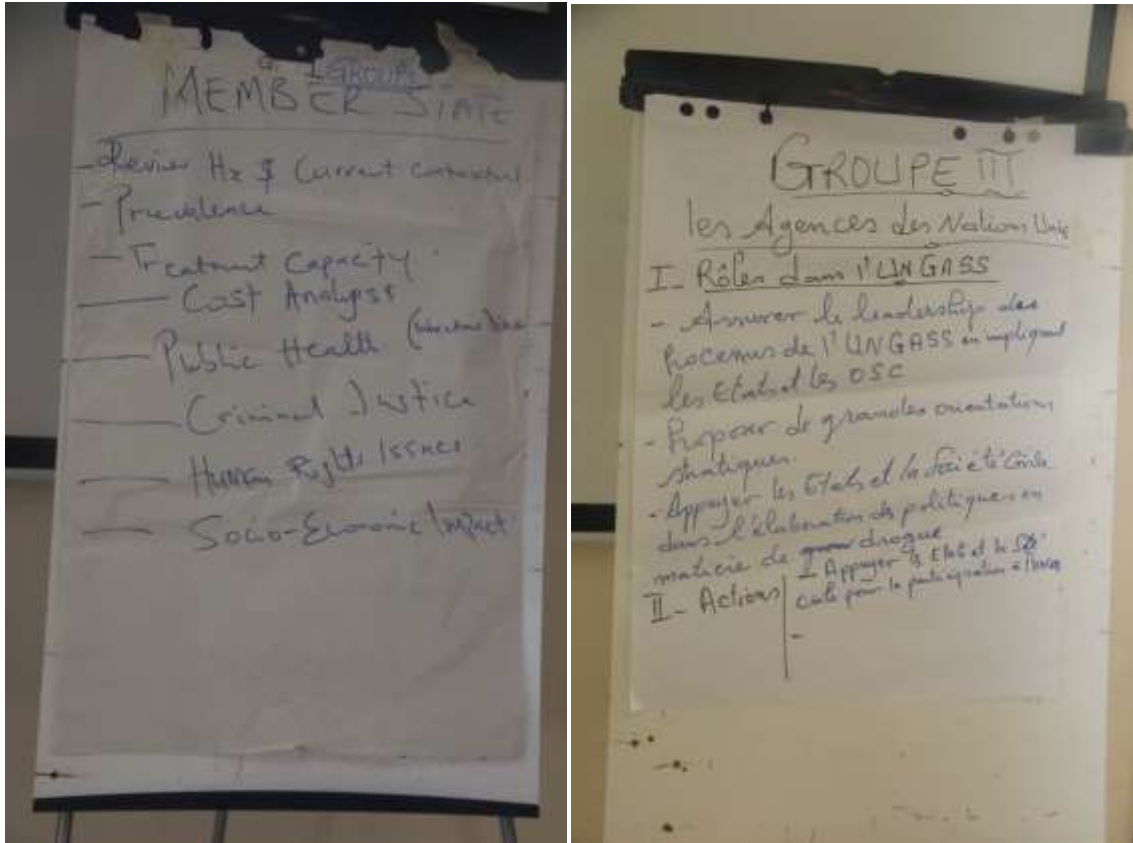 GROUPE
MEMBER STATE
- Review Hx & Current
- Prevalence
- Treatment Capacity
- Cost Analysis
- Public Health
- Criminal Justice
- Human Rights Issues
- Socio-Economic Impact
GROUPE III
les Agences des Nations Unies
I - Rôles dans l'UNGASS
- Assurer le leadership des
processus de l'UNGASS en impliquant
les Etats et les OSC
- Proposer de grandes orientations
- Appuyer les Etats et la Société Civile
dans l'élaboration des politiques en
matière de drogue
II - Actions
- Appuyer les Etats et la
pour la participation à
-